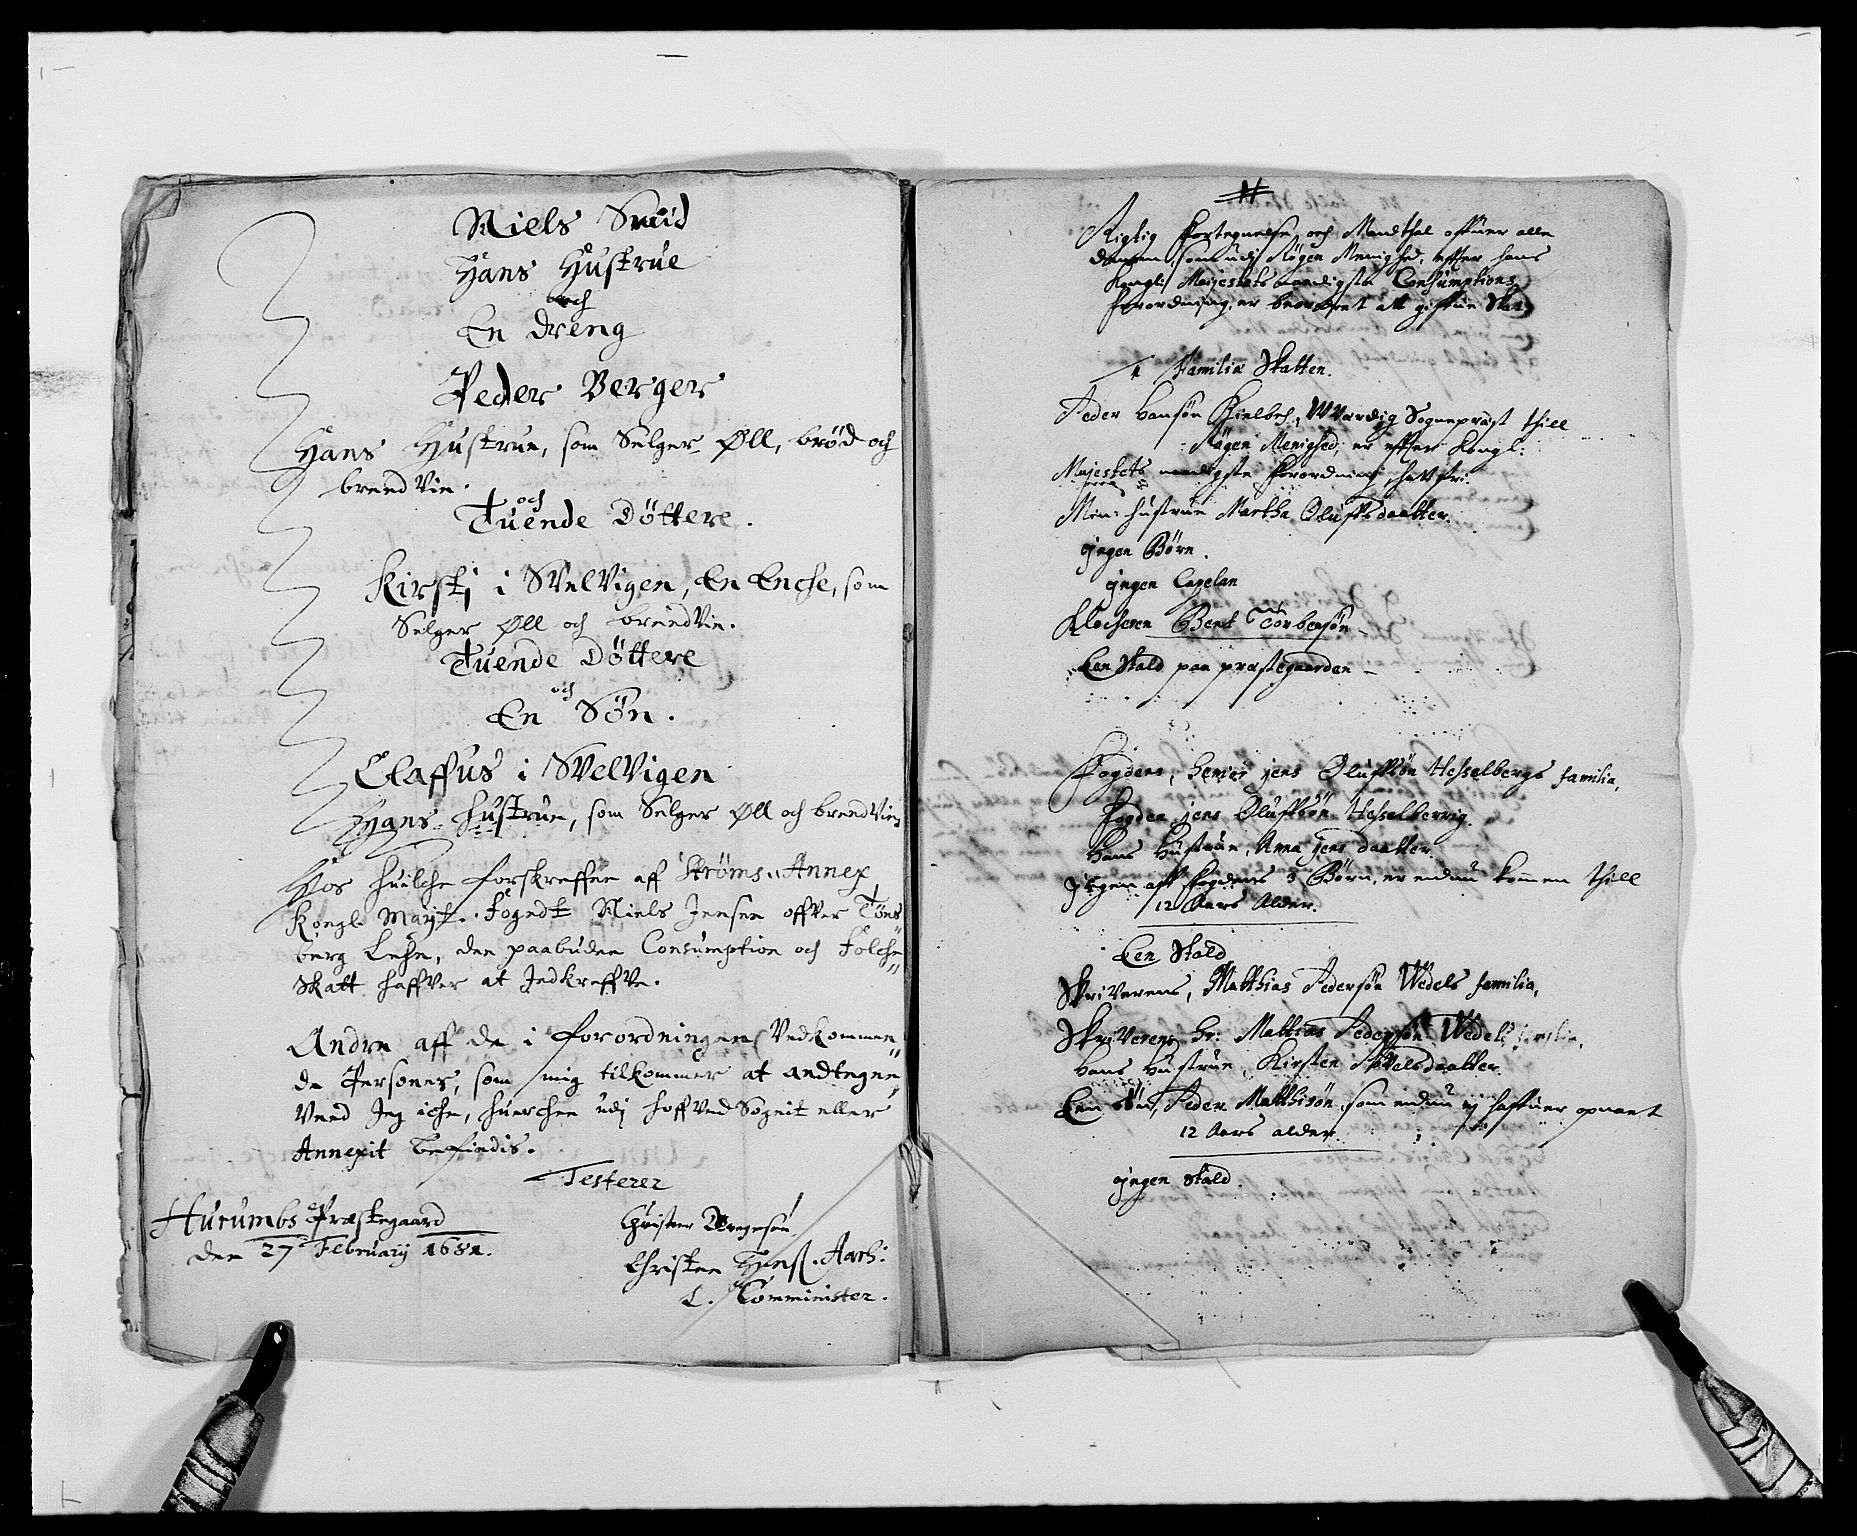 Niels Smid
Hans Hustrue
och
En dreng
Peder Berger
Hans Hustrue, som Selger Øll, brød och
brendVin.
och
Tuende Døttere.
Kirstj i SVelVigen, En Enche, som
Selger Øll och brendVin.
Tuende Døttere
och
En Søn.
Claffus i SVelVigen
Hans Hustrue, som Selger Øll och brendVin
Hos huilche forskreffne aff Strøms Annex
Kongl: Mayt. Fogedt Niels Jensen offver Tøns
berg Lehn, den paabuden Consumption och Folche
Skatt haffver at Indkreffve.
Andre aff de i forordningen Vedkommen
de Persones, som mig tilkommer at andtegne
Veed Jeg iche, huerchen udj hoffved Sognit eller
Annexit befindis.
Testerer
Hurumbs Præstegaard
den 27 February 1681.
Christen
Christen Hanss. Aarh:
L. Comminister.
11
Rigtig Fortegnelse och Mandthal offuer alle
dennem, som udj Røgen Menighed, effter hans
Kongl: Maijestets naadigste Consumptions
forordning, er beordret att giffue Skat
1 Familie Skatten.
Peder Hansøn Kielbech, WVærdig Sognepræst thill
Røgen Menighed, er effter Kongl:
Majestets naadigste Forordning, schatfri.
Min hustrue Martha Oluffsdaatter.
ingen Børn.
ingen Capelan
Klocheren Bent Torbensøn
Een Stald paa præstegaarden
Fogdens, Senior jens Oluffsøn Hesselbergs familia,
Fogden jens Oluffsøn Hesselberrig.
Hans Hustrue, Anna jens daatter.
Ingen aff Fogdens 3 Børn, er endnu kommen thill
12 Aars Alder.
Een Stald
SkriVerens, Matthias Pedersøn Wedels familia,
SkriVeren Hr: Mattias Pedersøn Wedels familia,
Hans Hustrue, Kirsten PoVelsdaatter.
Een søn, Peder Matthisøn, som endnu ej haffuer opnaet
12 Aars alder.
ingen Stald.